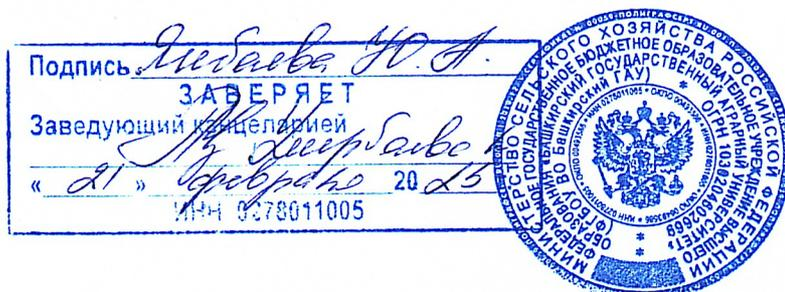 Подпись Янбаева Ю. А.
ЗАВЕРЯЕТ
Заведующий канцелярией
« 21 » февраля 20 25
ИНН 0278011005
МИНИСТЕРСТВО СЕЛЬСКОГО ХОЗЯЙСТВА РОССИЙСКОЙ ФЕДЕРАЦИИ
ФЕДЕРАЛЬНОЕ ГОСУДАРСТВЕННОЕ БЮДЖЕТНОЕ ОБРАЗОВАТЕЛЬНОЕ УЧРЕЖДЕНИЕ ВЫСШЕГО
ОБРАЗОВАНИЯ «БАШКИРСКИЙ ГОСУДАРСТВЕННЫЙ АГРАРНЫЙ УНИВЕРСИТЕТ»
(ФГБОУ ВО Башкирский ГАУ) * ОГРН 1030204602669